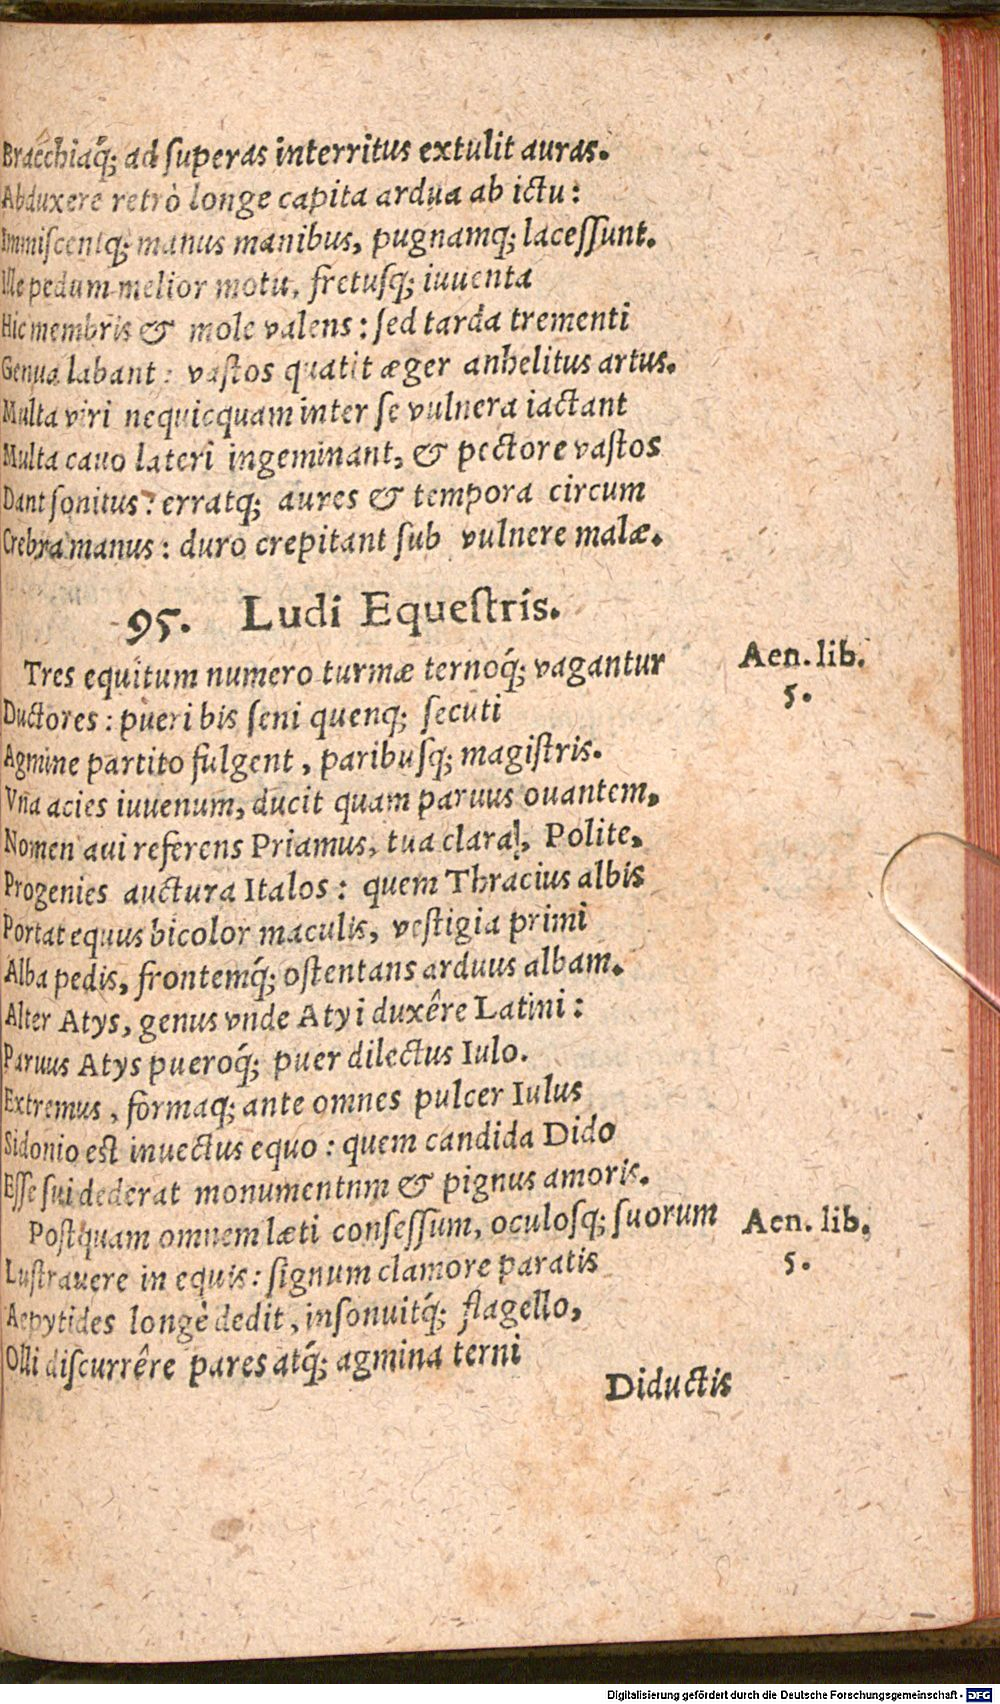 Bracchiaq́; ad ſuperas interritus extulit auras.
Abduxere retrò longe capita ardua ab ictu:
Immiſcentq; manus manibus, pugnamq; laceſſunt.
Ille pedum melior motu, fretuſq; iuuenta
Hic membris & mole valens: ſed tarda trementi
Genua labant: vaſtos quatit æger anhelitus artus.
Multa viri nequicquam inter ſe vulnera iactant
Multa cauo lateri ingeminant, & pectore vaſtos
Dant ſonitus: erratq; aures & tempora circum
Crebra manus: duro crepitant ſub vulnere malæ.
95. Ludi Equeſtris.
Tres equitum numero turmæ ternoq́; vagantur
Aen. lib.
5.
Ductores: pueri bis ſeni quenq; ſecuti
Agmine partito fulgent, paribuſq; magiſtris.
Vna acies iuuenum, ducit quam paruus ouantem,
Nomen aui referens Priamus, tua clara!, Polite,
Progenies auctura Italos: quem Thracius albis
Portat equus bicolor maculis, veſtigia primi
Alba pedis, frontemq́; oſtentans arduus albam.
Alter Atys, genus vnde Atyi duxêre Latini:
Paruus Atys pueroq́; puer dilectus Iulo.
Extremus, formaq; ante omnes pulcer Iulus
Sidonio eſt inuectus equo: quem candida Dido
Eſſe ſui dederat monumentnm & pignus amoris.
Poſtquam omnem læti conſeſſum, oculoſq; ſuorum
Aen. lib.
5.
Luſtrauere in equis: ſignum clamore paratis
Aepytides longè dedit, inſonuitq́; flagello,
Olli diſcurrêre pares atq́; agmina terni
Diductis
Digitalisierung gefördert durch die Deutsche Forschungsgemeinschaft - DFG